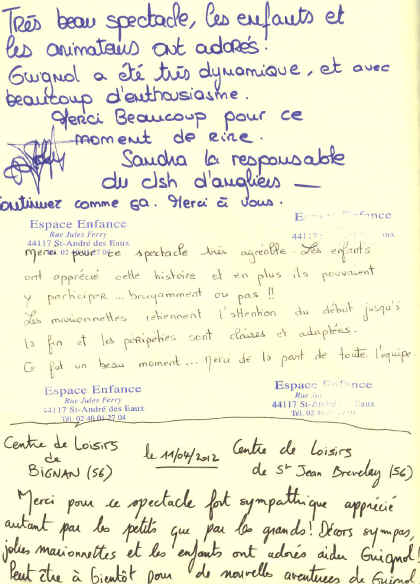 Très beau spectacle, les enfants et
les animateurs ont adorés.
Guignol a été très dynamique, et avec
beaucoup d'enthousiasme.
Merci Beaucoup pour ce
moment de rire.
Sandra la responsable
du clsh d'angliers
Continuez comme ça. Merci à vous.
Espace Enfance
Rue Jules Ferry
44117 St-André des Eaux
Espace Enfance
44117
Merci pour ce spectacle très agréable. Les enfants
ont apprécié cette histoire et en plus ils pouvaient
y participer... bruyamment ou pas !!
Les marionnettes retiennent l'attention du début jusqu'à
la fin et les péripéties sont claires et adaptées.
Ce fut un beau moment... Merci de la part de toute l'équipe
Espace Enfance
Rue Jules Ferry
44117 St-André des Eaux
Tél. 02 40 01 27 04
Espace Enfance
Rue
44117 St-A
Tél. 02
Centre de Loisirs
de
BIGNAN (56)
le 11/04/2012
Centre de Loisirs
de St Jean Brevelay (56)
Merci pour ce spectacle fort sympathique apprécié
autant par les petits que par les grands! Décors sympas,
jolies marionnettes et les enfants ont adorés aider Guignol!
Peut être à bientôt pour de nouvelles aventures de Guignol